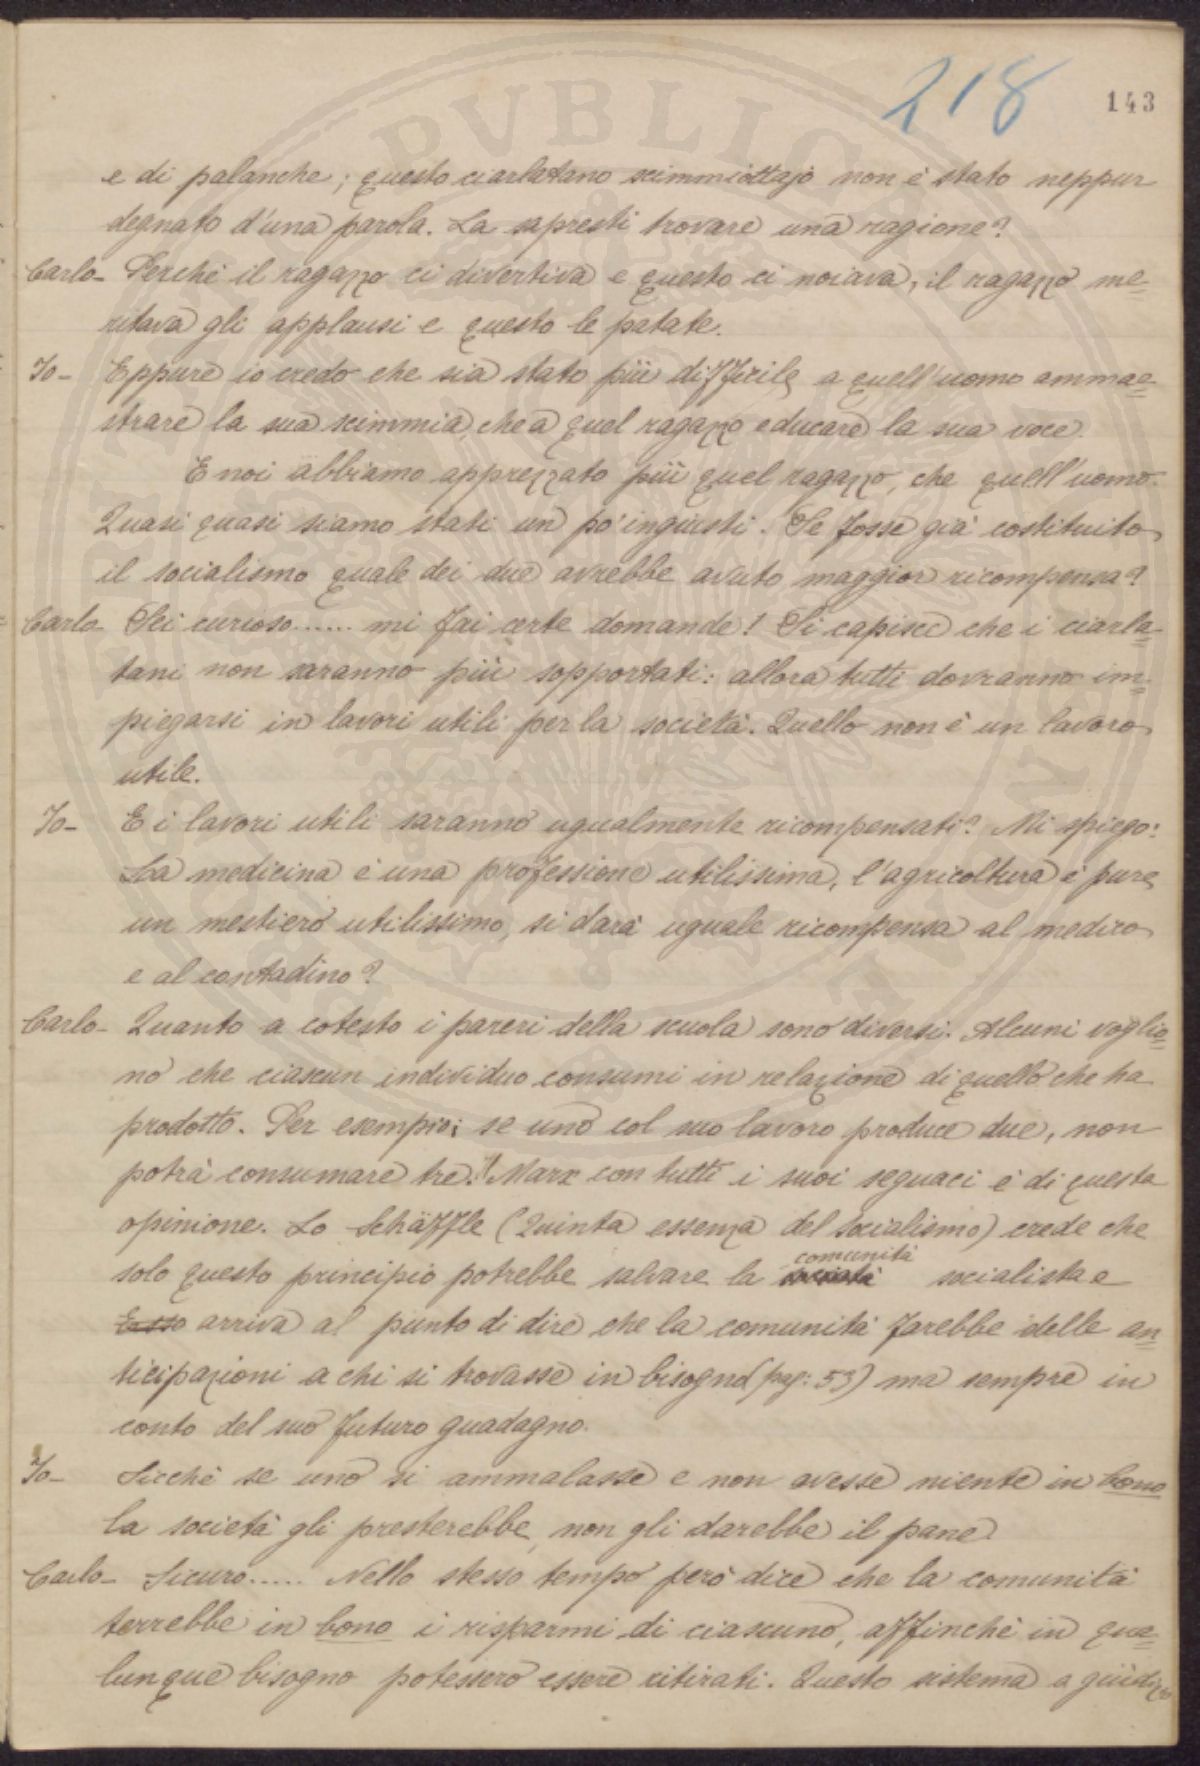 218 143
e di palanche; questo ciarlatano scimmiottajo non è stato neppur
degnato d'una parola. La sapresti trovare una ragione?
Carlo- Perchè il ragazzo ci divertiva e questo ci noiava, il ragazzo me=
ritava gli applausi e questo le patate.
Io- Eppure io credo che sia stato più difficile a quell'uomo ammae=
strare la sua scimmia, che a quel ragazzo educare la sua voce.
E noi abbiamo apprezzato più quel ragazzo, che quell'uomo.
Quasi quasi siamo stati un po' ingiusti. Se fosse già costituito
il socialismo quale dei due avrebbe avuto maggior ricompensa?
Carlo- Sei curioso...... mi fai certe domande! Si capisce che i ciarla=
tani non saranno più sopportati: allora tutti dovranno im=
piegarsi in lavori utili per la società. Quello non è un lavoro
utile.
Io- E i lavori utili saranno ugualmente ricompensati? Mi spiego:
La medicina è una professione utilissima, l'agricoltura è pure
un mestiero utilissimo, si darà uguale ricompensa al medico
e al contadino?
Carlo- Quanto a cotesto i pareri della scuola sono diversi. Alcuni voglio=
no che ciascun individuo consumi in relazione di quello che ha
prodotto. Per esempio: se uno col suo lavoro produce due, non
potrà consumare tre." Marx con tutti i suoi seguaci è di questa
opinione. Lo Schäffle (Quinta essenza del socialismo) crede che
solo questo principio potrebbe salvare la società comunità socialista e
Esso arriva al punto di dire che la comunità farebbe delle an=
ticipazioni a chi si trovasse in bisogno (pag: 53) ma sempre in
conto del suo futuro guadagno.
Io- Sicchè se uno si ammalasse e non avesse niente in bono
la società gli presterebbe, non gli darebbe il pane.
Carlo- Sicuro..... Nello stesso tempo però dice che la comunità
terrebbe in bono i risparmi di ciascuno, affinchè in qua=
lunque bisogno potessero essere ritirati. Questo sistema a giudizio